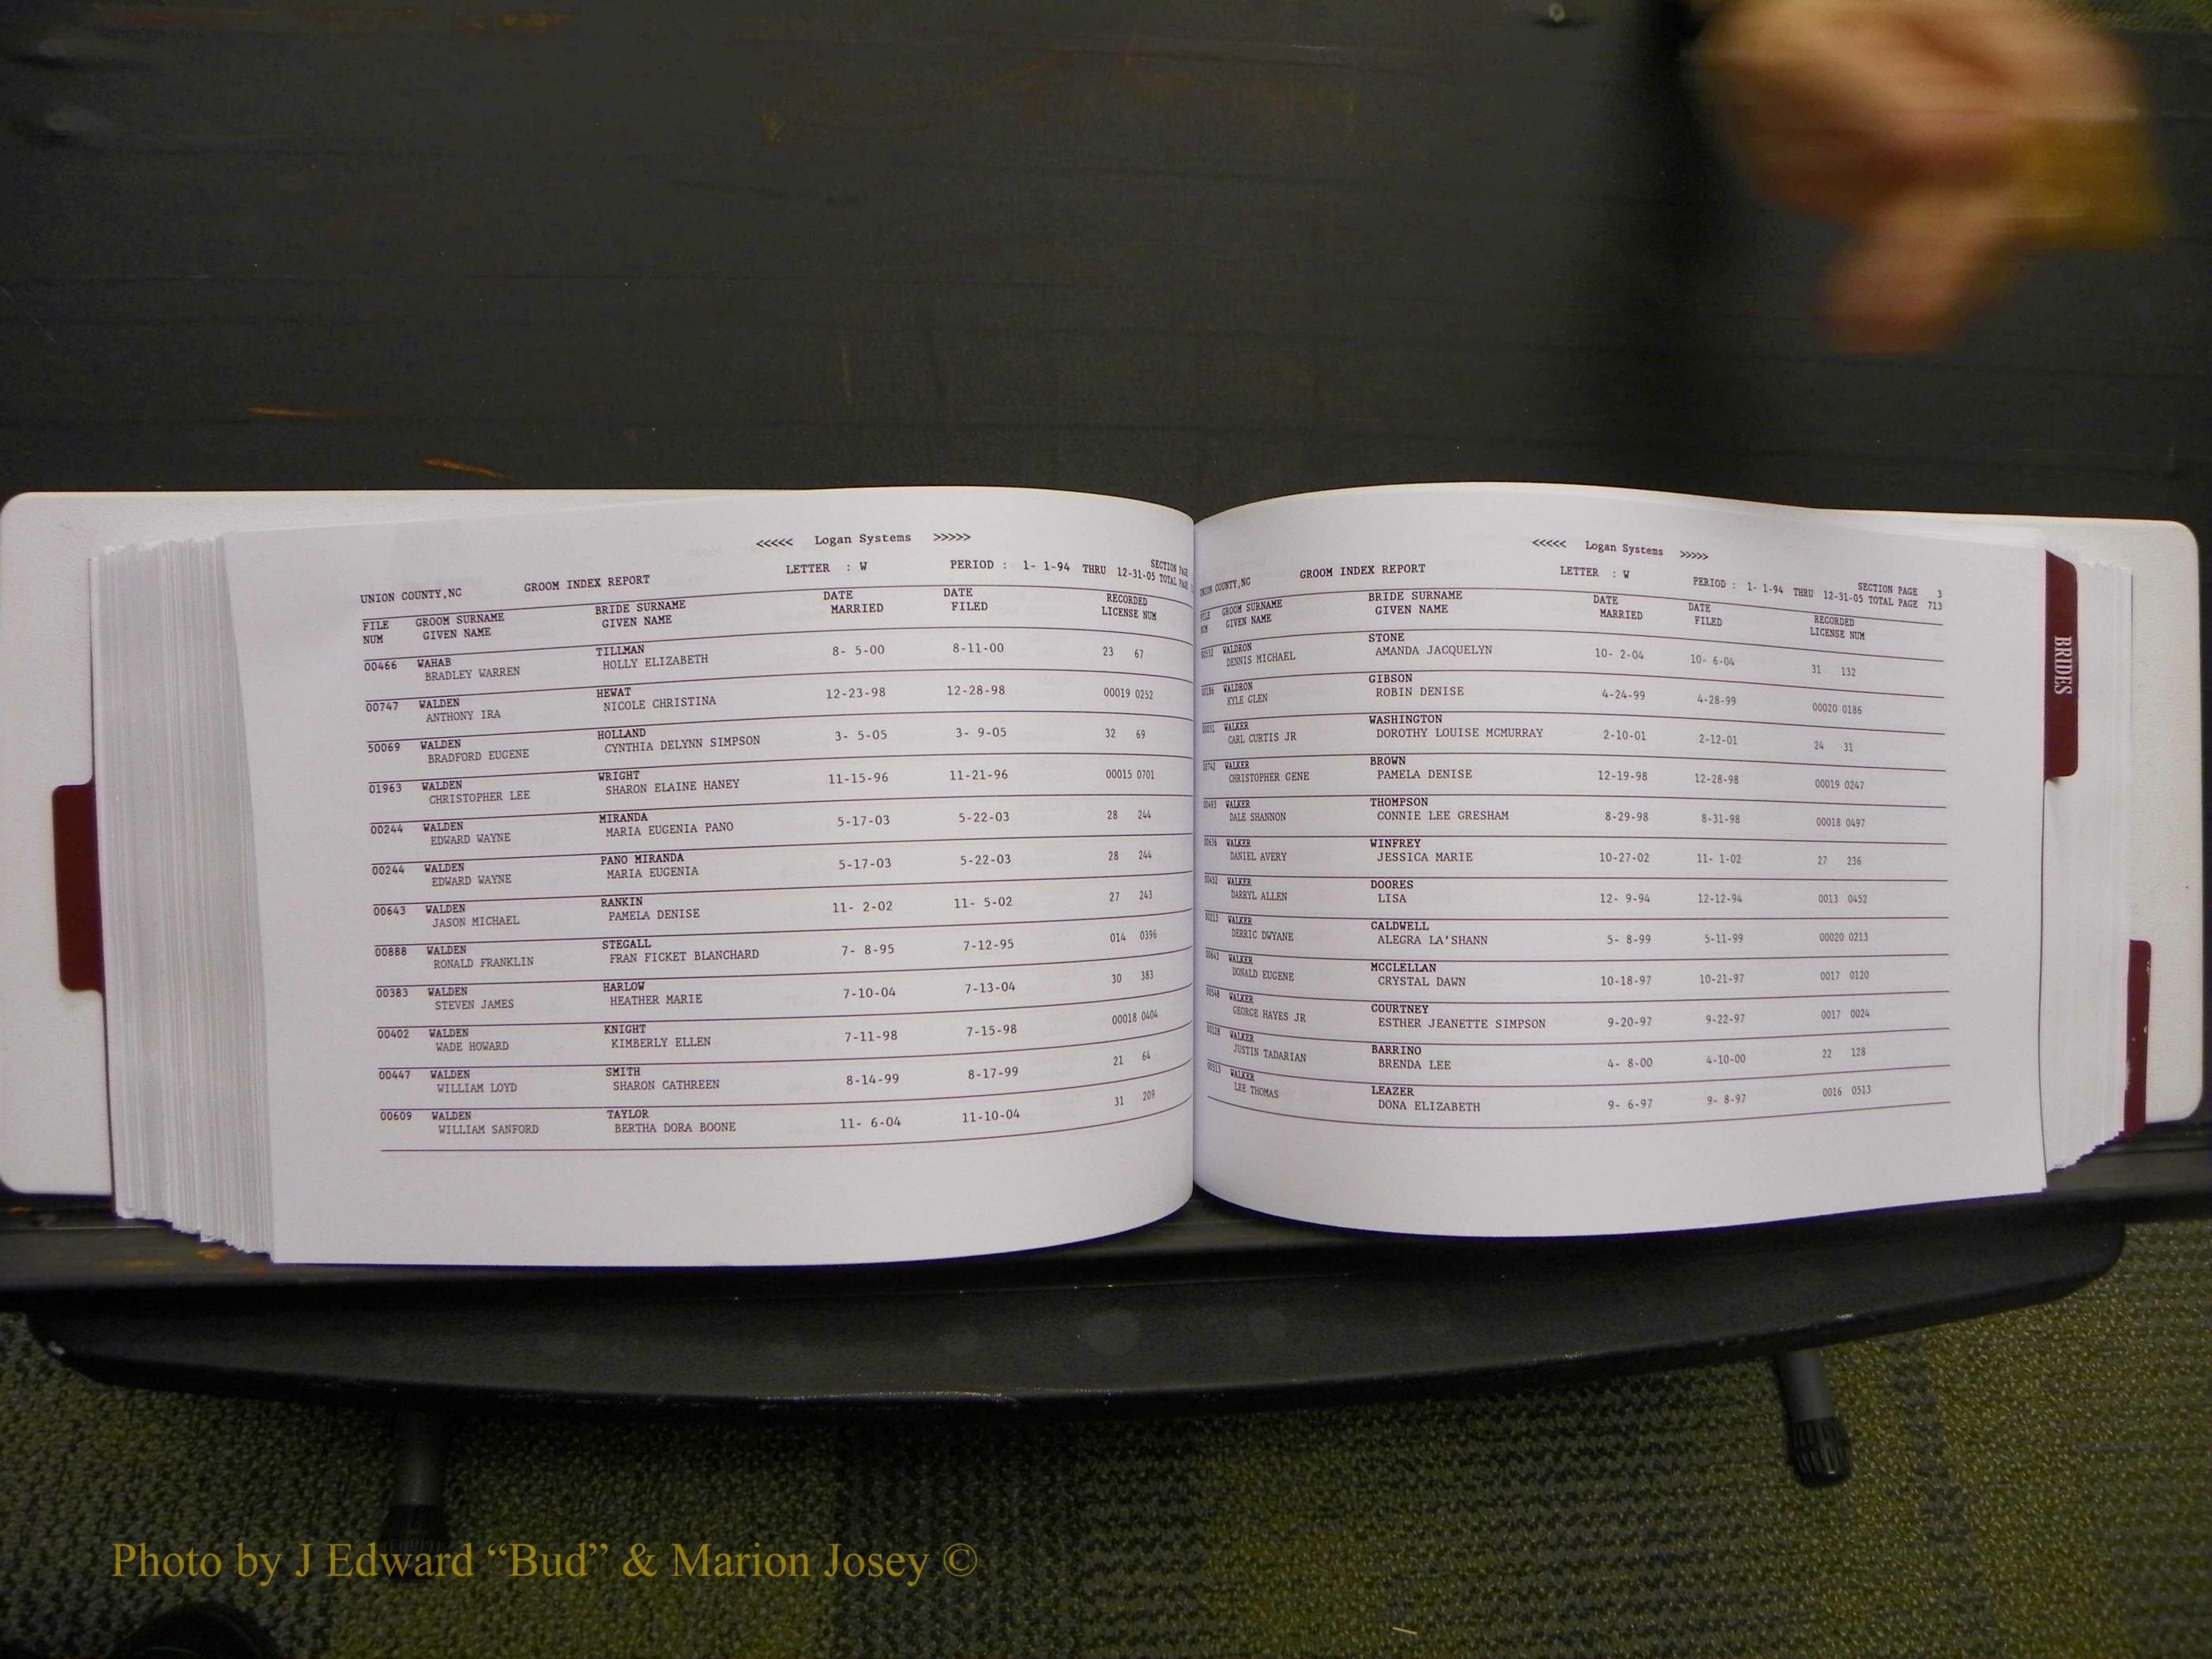 <<<<< Logan Systems >>>>>
UNION COUNTY,NC GROOM INDEX REPORT LETTER : W PERIOD : 1- 1-94 THRU 12-31-05 SECTION PAGE
TOTAL PAGE
FILE GROOM SURNAME BRIDE SURNAME DATE DATE RECORDED
NUM GIVEN NAME GIVEN NAME MARRIED FILED LICENSE NUM
00466 WAHAB TILLMAN 8- 5-00 8-11-00 23 67
BRADLEY WARREN HOLLY ELIZABETH
00747 WALDEN HEWAT 12-23-98 12-28-98 00019 0252
ANTHONY IRA NICOLE CHRISTINA
50069 WALDEN HOLLAND 3- 5-05 3- 9-05 32 69
BRADFORD EUGENE CYNTHIA DELYNN SIMPSON
01963 WALDEN WRIGHT 11-15-96 11-21-96 00015 0701
CHRISTOPHER LEE SHARON ELAINE HANEY
00244 WALDEN MIRANDA 5-17-03 5-22-03 28 244
EDWARD WAYNE MARIA EUGENIA PANO
00244 WALDEN PANO MIRANDA 5-17-03 5-22-03 28 244
EDWARD WAYNE MARIA EUGENIA
00643 WALDEN RANKIN 11- 2-02 11- 5-02 27 243
JASON MICHAEL PAMELA DENISE
00888 WALDEN STEGALL 7- 8-95 7-12-95 014 0396
RONALD FRANKLIN FRAN FICKET BLANCHARD
00383 WALDEN HARLOW 7-10-04 7-13-04 30 383
STEVEN JAMES HEATHER MARIE
00402 WALDEN KNIGHT 7-11-98 7-15-98 00018 0404
WADE HOWARD KIMBERLY ELLEN
00447 WALDEN SMITH 8-14-99 8-17-99 21 64
WILLIAM LOYD SHARON CATHREEN
00609 WALDEN TAYLOR 11- 6-04 11-10-04 31 209
WILLIAM SANFORD BERTHA DORA BOONE
<<<<< Logan Systems >>>>>
UNION COUNTY,NC GROOM INDEX REPORT LETTER : W PERIOD : 1- 1-94 THRU 12-31-05 SECTION PAGE 3
TOTAL PAGE 713
FILE GROOM SURNAME BRIDE SURNAME DATE DATE RECORDED
NUM GIVEN NAME GIVEN NAME MARRIED FILED LICENSE NUM
WALDRON STONE 10- 2-04 10- 6-04 31 132
DENNIS MICHAEL AMANDA JACQUELYN
00186 WALDRON GIBSON 4-24-99 4-28-99 00020 0186
KYLE GLEN ROBIN DENISE
WALKER WASHINGTON 2-10-01 2-12-01 24 31
CARL CURTIS JR DOROTHY LOUISE MCMURRAY
00742 WALKER BROWN 12-19-98 12-28-98 00019 0247
CHRISTOPHER GENE PAMELA DENISE
WALKER THOMPSON 8-29-98 8-31-98 00018 0497
DALE SHANNON CONNIE LEE GRESHAM
00636 WALKER WINFREY 10-27-02 11- 1-02 27 236
DANIEL AVERY JESSICA MARIE
WALKER DOORES 12- 9-94 12-12-94 0013 0452
DARRYL ALLEN LISA
00213 WALKER CALDWELL 5- 8-99 5-11-99 00020 0213
DERRIC DWYANE ALEGRA LA'SHANN
WALKER MCCLELLAN 10-18-97 10-21-97 0017 0120
DONALD EUGENE CRYSTAL DAWN
WALKER COURTNEY 9-20-97 9-22-97 0017 0024
GEORGE HAYES JR ESTHER JEANETTE SIMPSON
00128 WALKER BARRINO 4- 8-00 4-10-00 22 128
JUSTIN TADARIAN BRENDA LEE
00513 WALKER LEAZER 9- 6-97 9- 8-97 0016 0513
LEE THOMAS DONA ELIZABETH
BRIDES
Photo by J Edward “Bud” & Marion Josey ©